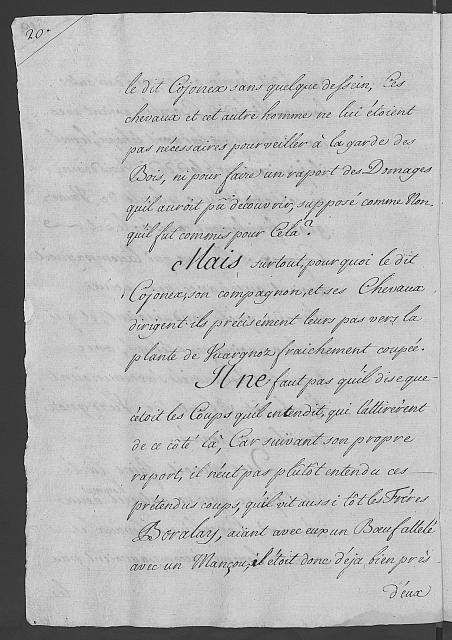 20.
le dit Cojonex sans quelque dessein, Ces
chevaux et cet autre homme ne lui étoient
pas nécessaires pour veiller à la garde des
Bois, ni pour faire un raport des Domages
qu'il auroit pû découvrir, supposé comme Non
qu'il fut commis pour Cela?
Mais surtout, pourquoi le dit
Cojonex, son compagnon, et ses Chevaux
dirigent-ils précisément leurs pas vers la
plante de Vuargnoz fraichement coupée.
Il ne faut pas qu'il dise que
c'étoit les Coups qu'il entendit, qui l'attirèrent
de ce côté là, Car suivant son propre
raport, il n'eut pas plûtôt entendu ces
prétendus coups, qu'il vit aussi tôt les Fréres
Boralay, aiant avec eux un Bœuf attelé
avec un Mançou, il étoit donc déja bien près
d'eux